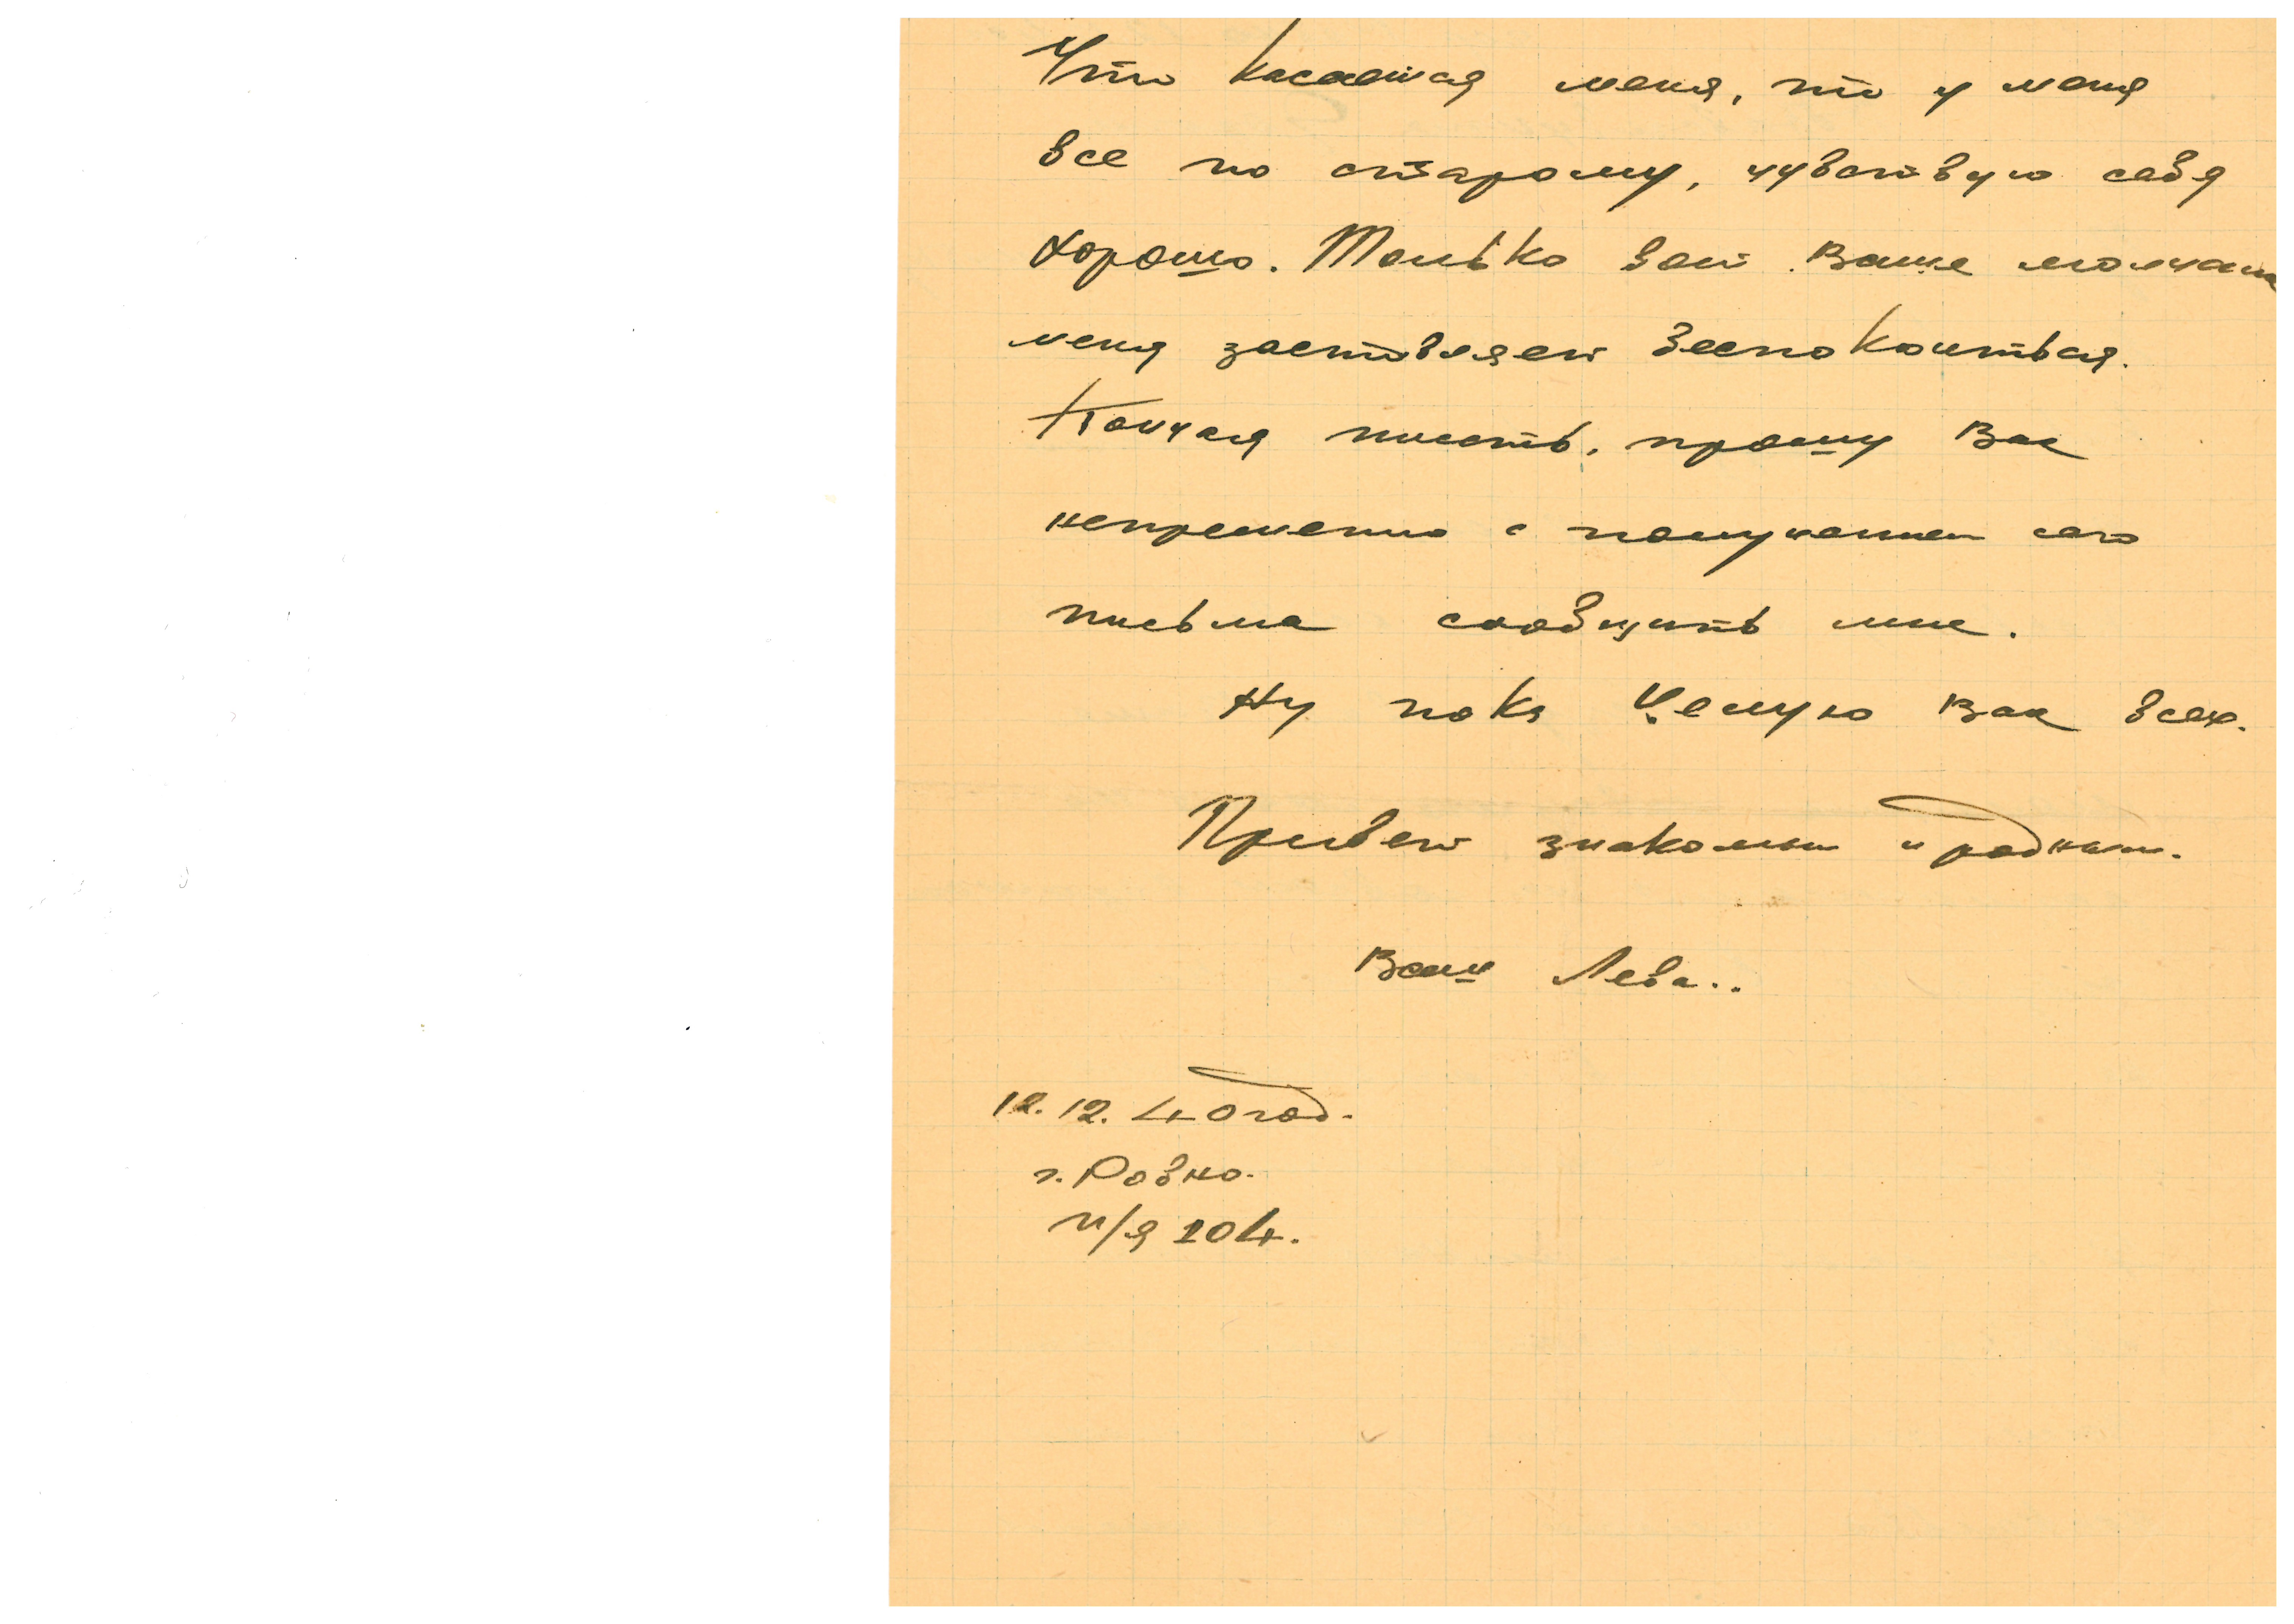 Что касается меня, то у меня
все по старому, чувствую себя
хорошо. Только вот Ваше молчание
меня заставляет беспокоиться.
Кончая писать, прошу Вас
непременно с получением сего
письма сообщить мне.
Ну пока Целую Вас всех.
Привет знакомым и родным.
Ваш Лева..
12.12.40 год.
г. Ровно.
п/я 104.